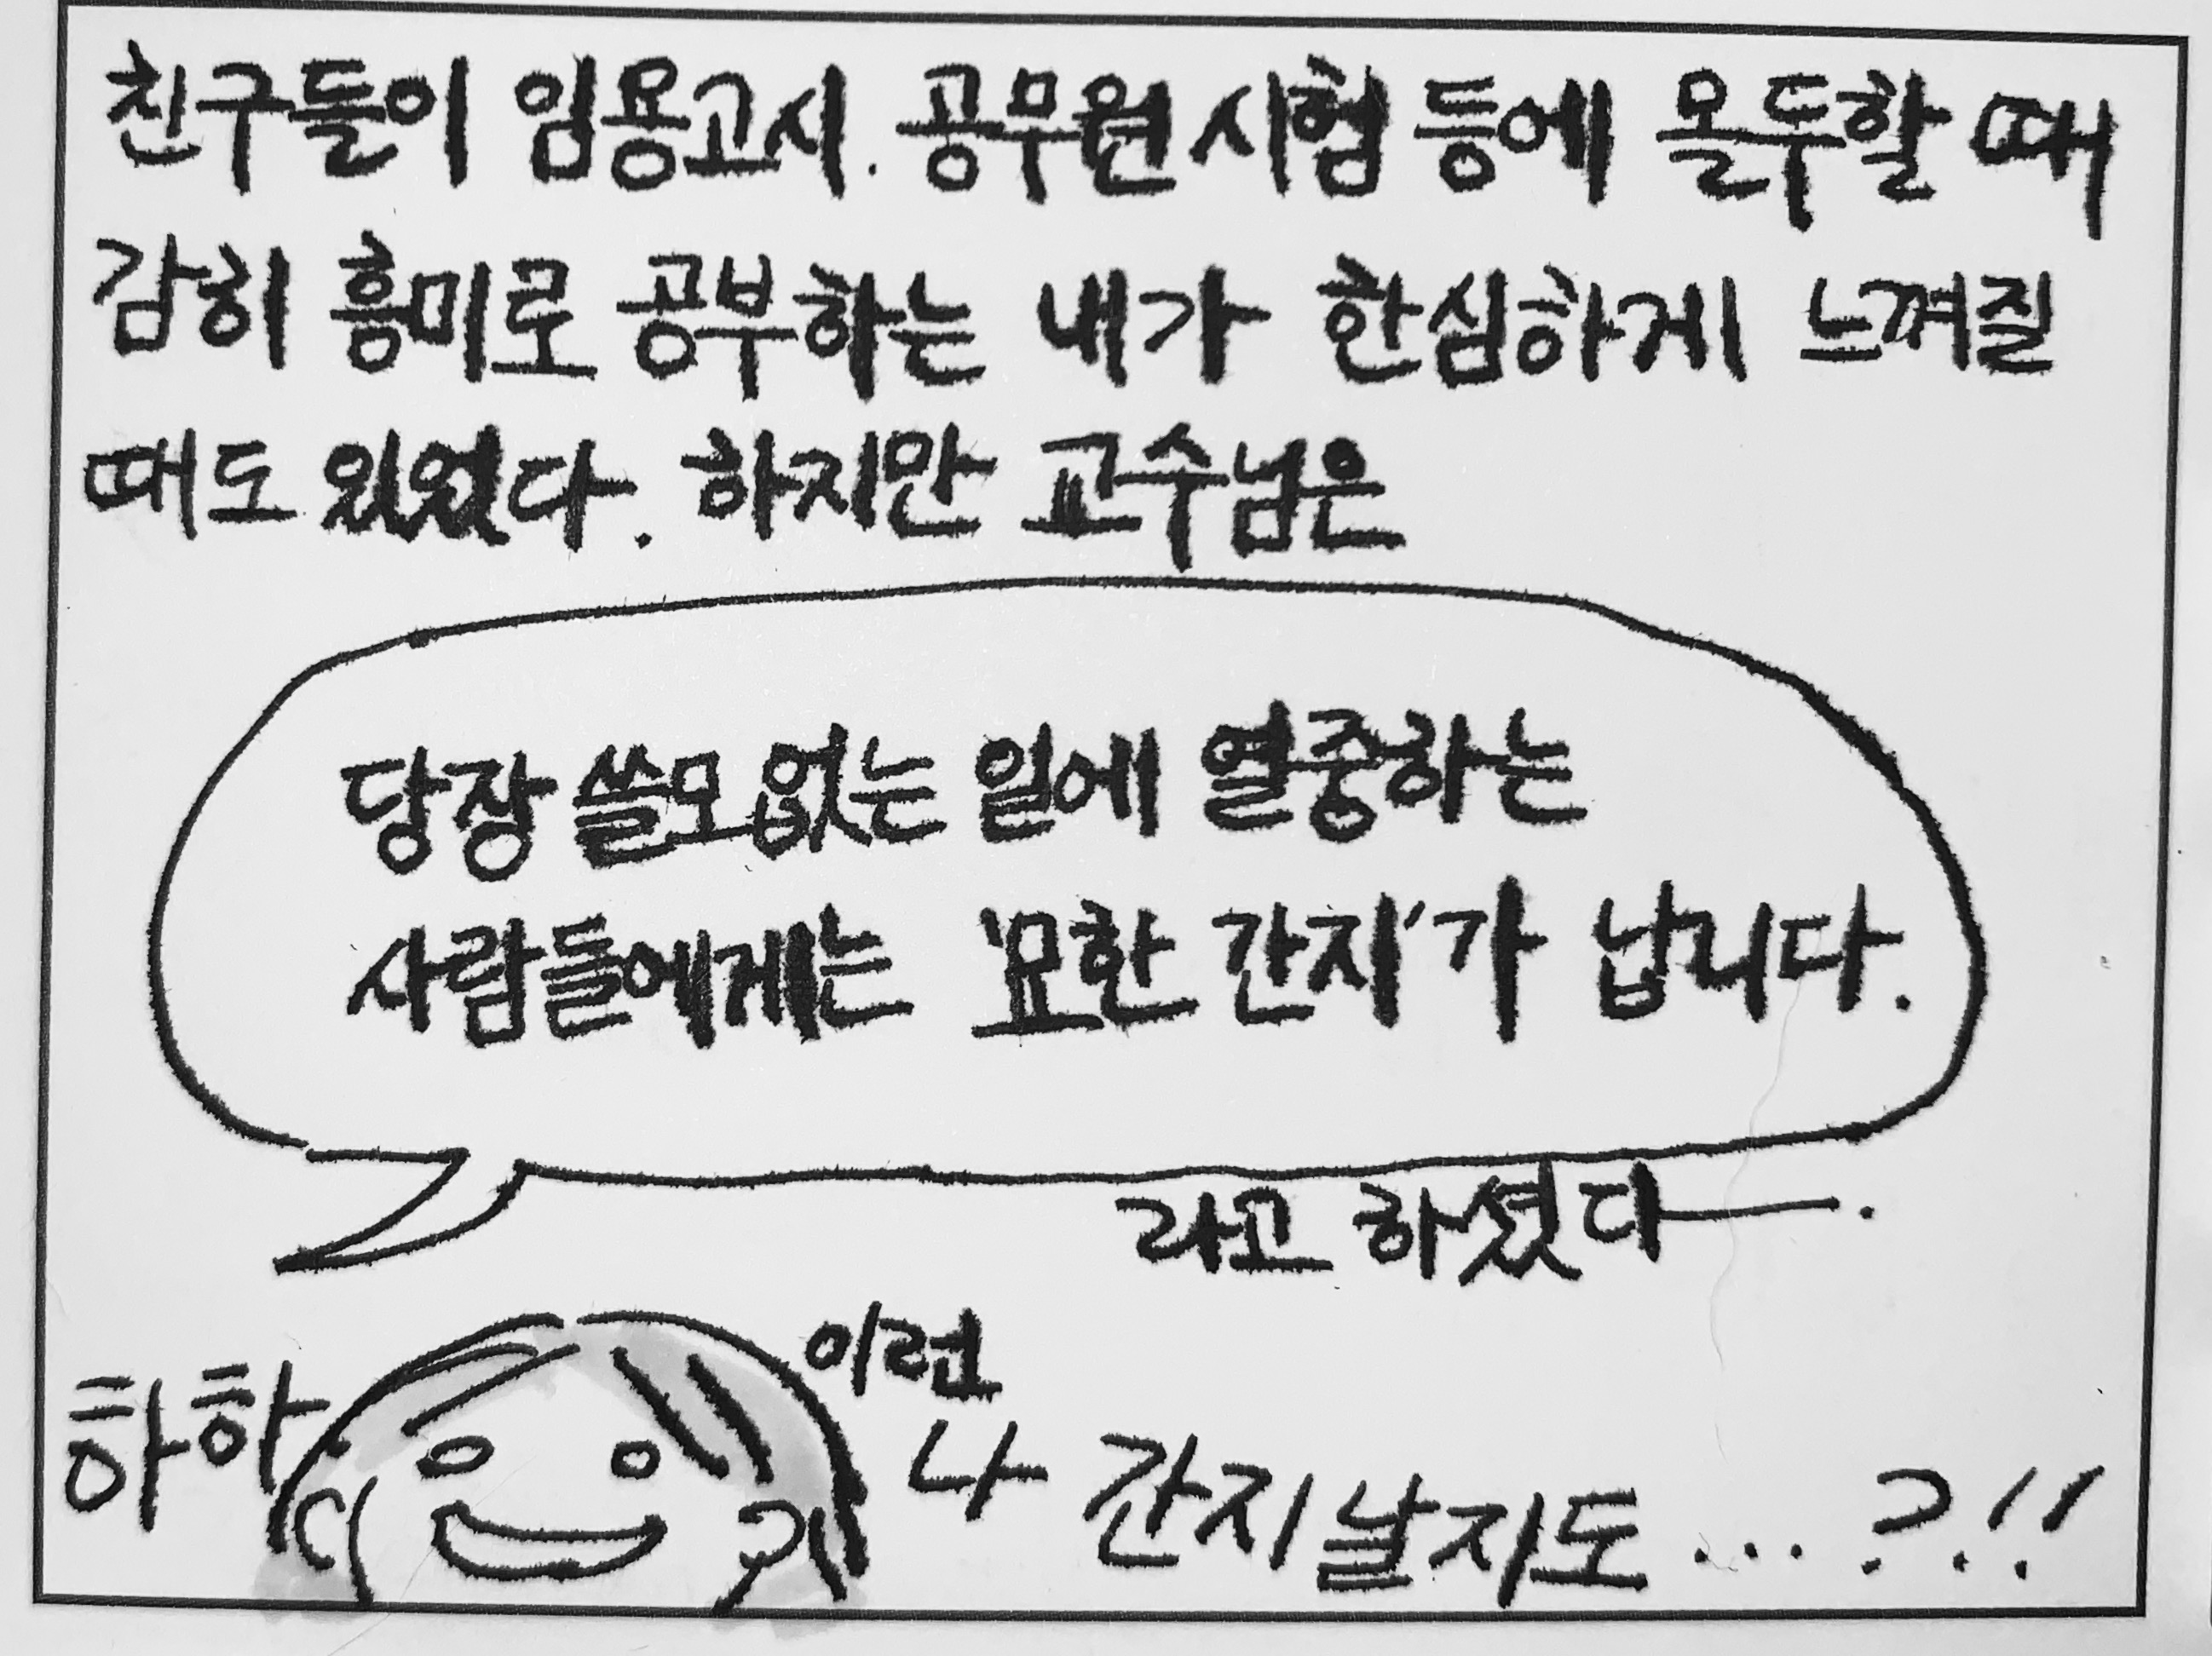 친구들이 임용고시. 공무원 시험 등에 올두할 때
감히 흥미로 공부하는 내가 한심하게 느껴질
때도 있었다. 하지만 교수님은
당장 쓸모없는 일에 열중하는
사람들에게는 '묘한 간지'가 납니다.
라고 하셨다—.
하하
이런
나 간지날지도...?!!